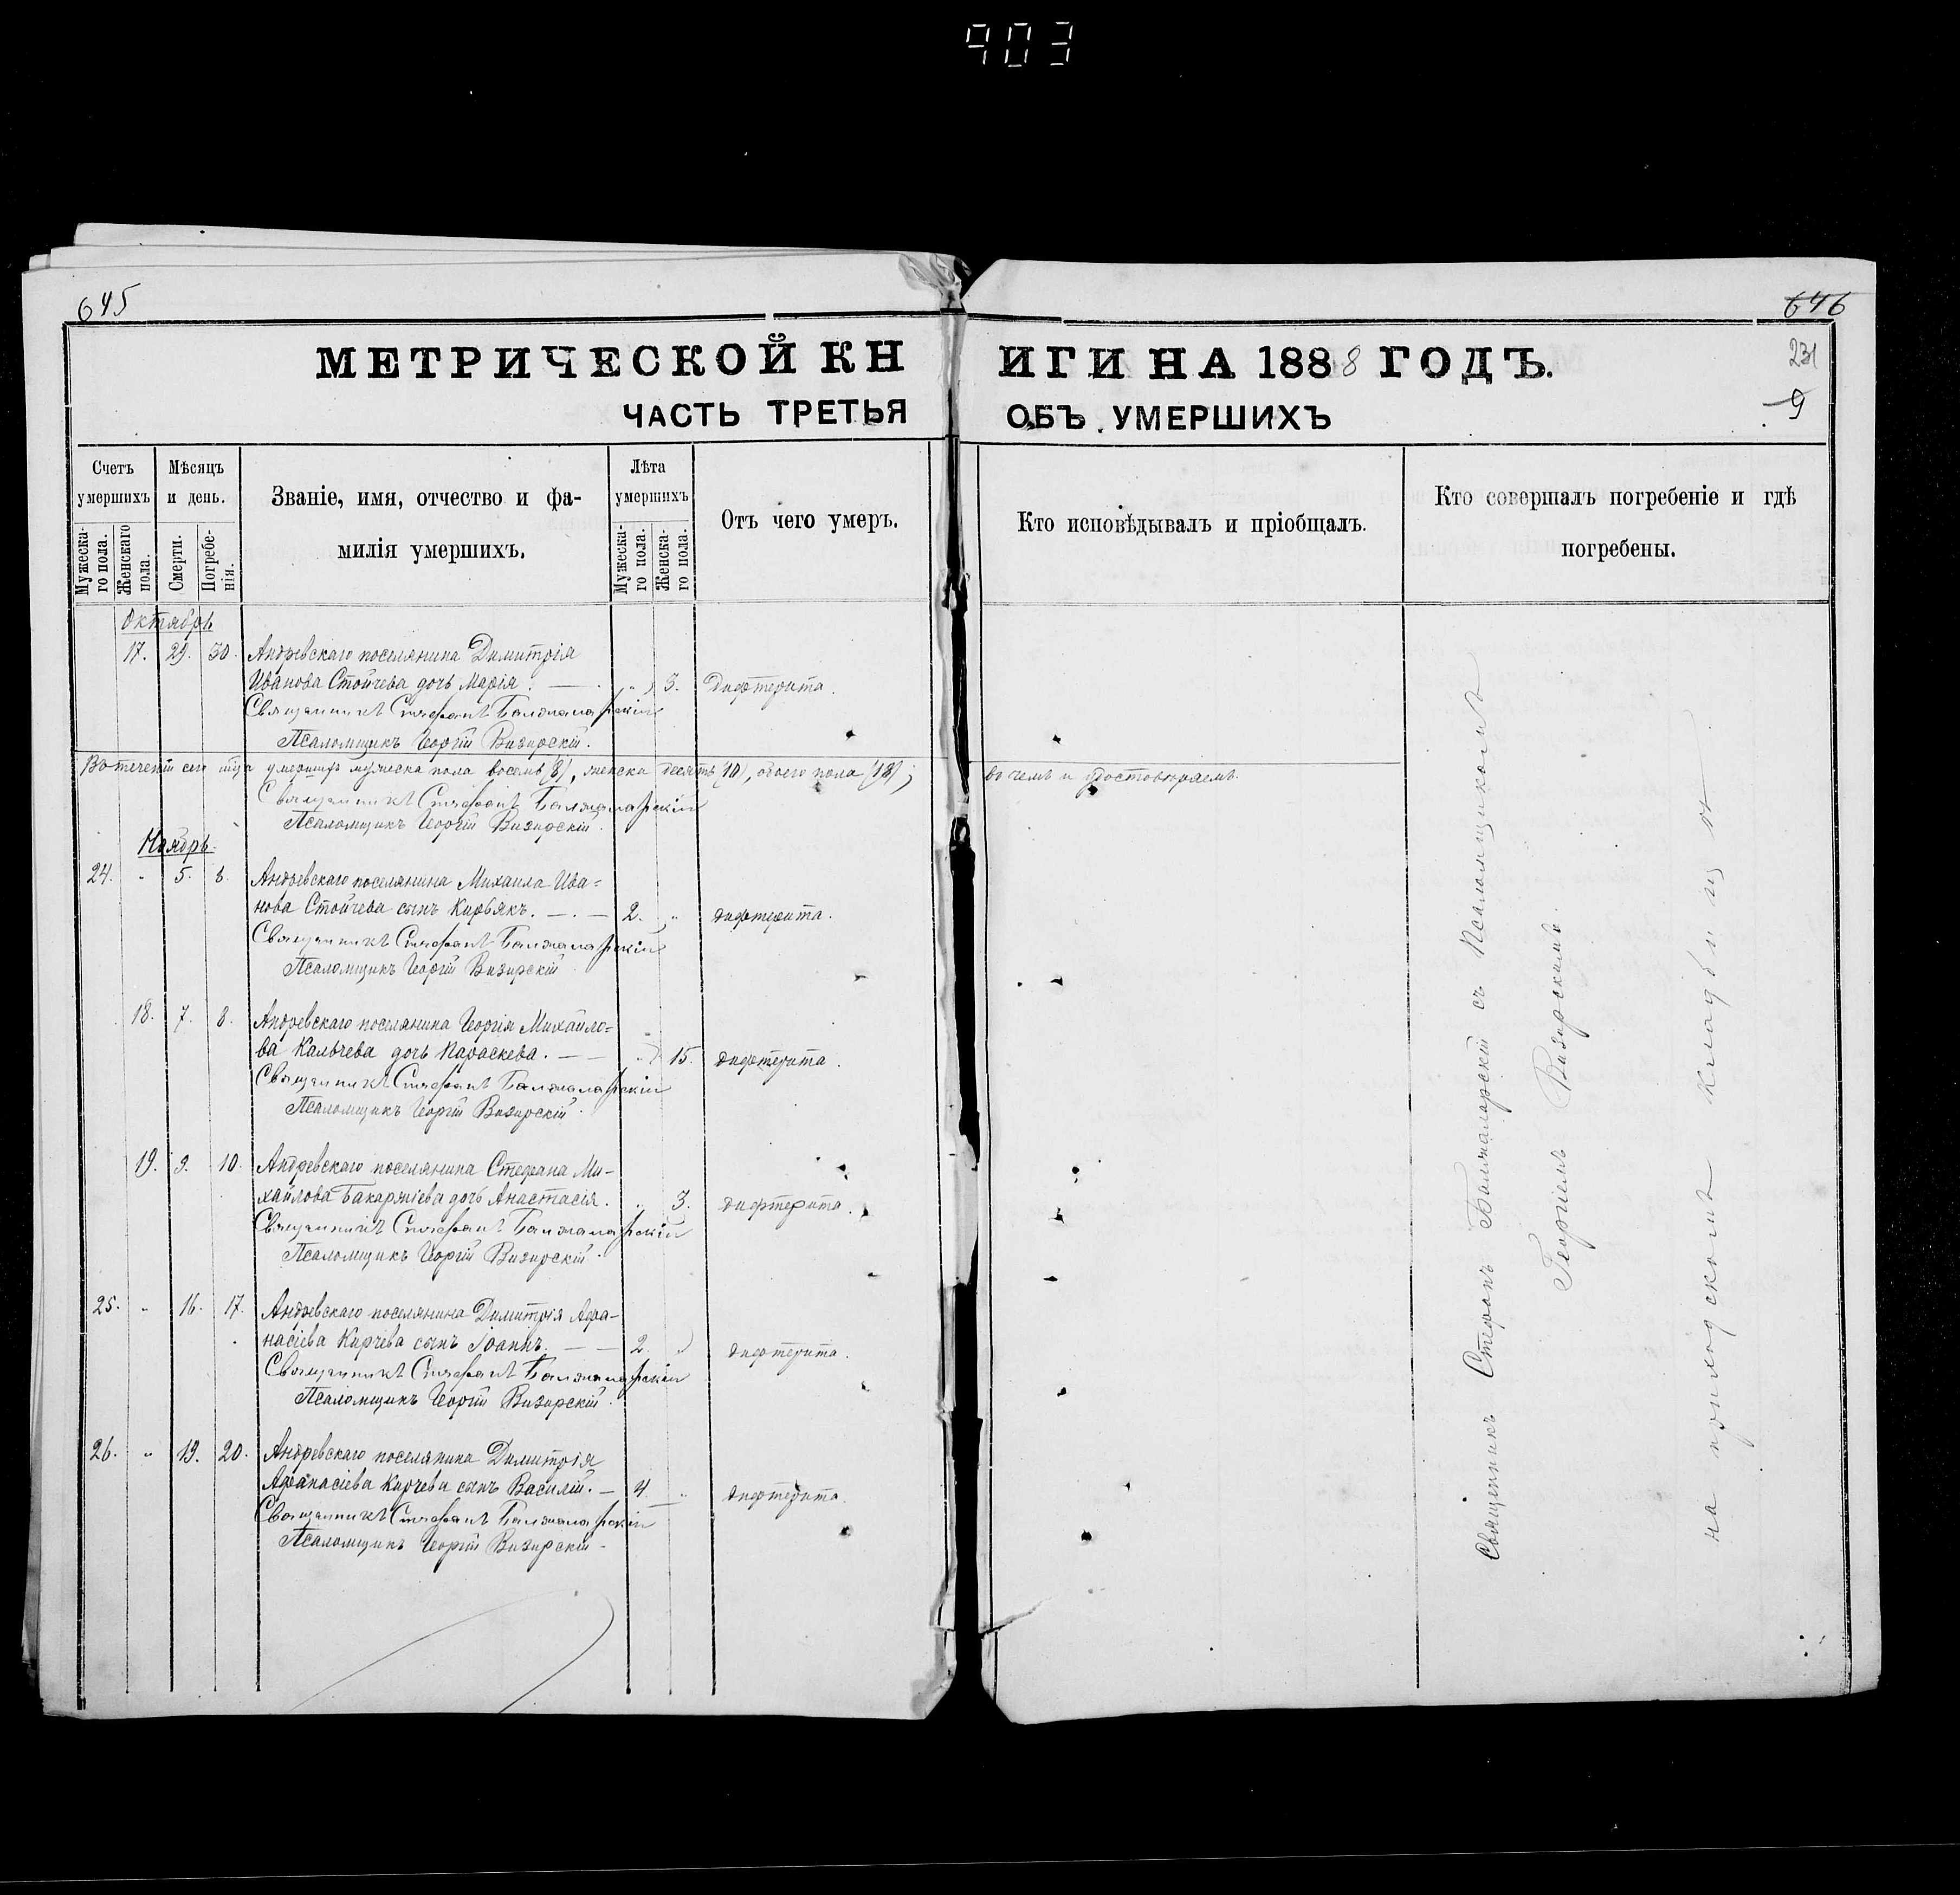 903
645
646
МЕТРИЧЕСКОЙ КНИГИ НА 1888 ГОДЪ.
231
9
ЧАСТЬ ТРЕТЬЯ ОБЪ УМЕРШИХЪ
Счетъ умершихъ
Мужеска-го пола.
Женскаго пола.
Мѣсяцъ и день.
Смерти.
Погребе-нія.
Званіе, имя, отчество и фа-
милія умершихъ.
Лѣта умершихъ
Мужеска-го пола.
Женска-го пола.
Отъ чего умеръ.
Кто исповѣдывалъ и пріобщалъ.
Кто совершалъ погребеніе и гдѣ
погребены.
Октябрь
17. 29. 30. Андревскаго поселянина Димитрія
Иванова Стойчева дочь Марія. — „ 3. Дифтерита.
Священникъ Стефанъ Балжаларскій
Псаломщикъ Георгій Визирскій.
Въ теченіи сего мѣсяца умершихъ мужеска пола восемь (8), женска десять (10), обоего пола (18); въ чемъ и удостовѣряемъ.
Священникъ Стефанъ Балжаларскій
Псаломщикъ Георгій Визирскій.
Ноябрь.
24. „ 5. 8. Андревскаго поселянина Михаила Ива=
нова Стойчева сынъ Кирьякъ. — . — 2. „ дифтерита.
Священникъ Стефанъ Балжаларскій
Псаломщикъ Георгій Визирскій
18. 7. 8. Андревскаго поселянина Георгія Михайло=
ва Кальчева дочь Параскева. — — „ 15. дифтерита.
Священникъ Стефанъ Балжаларскій
Псаломщикъ Георгій Визирскій.
19. 9. 10. Андревскаго поселянина Стефана Ми-
хайлова Бакаржіева дочь Анастасія. „ 3. дифтерита.
Священникъ Стефанъ Балжаларскій
Псаломщикъ Георгій Визирскій.
25. „ 16. 17. Андревскаго поселянина Димитрія Афа-
насіева Кирчева сынъ Іоаннъ. — — 2. „ дифтерита.
Священникъ Стефанъ Балжаларскій
Псаломщикъ Георгій Визирскій.
26. „ 19. 20. Андревскаго поселянина Димитрія
Афанасіева Кирчева сынъ Василій. — 4. „ дифтерита.
Священникъ Стефанъ Балжаларскій
Псаломщикъ Георгій Визирскій.
Священникъ Стефанъ Балжаларскій съ Псаломщикомъ
Георгіемъ Визирскимъ.
на приходскомъ кладбищѣ.